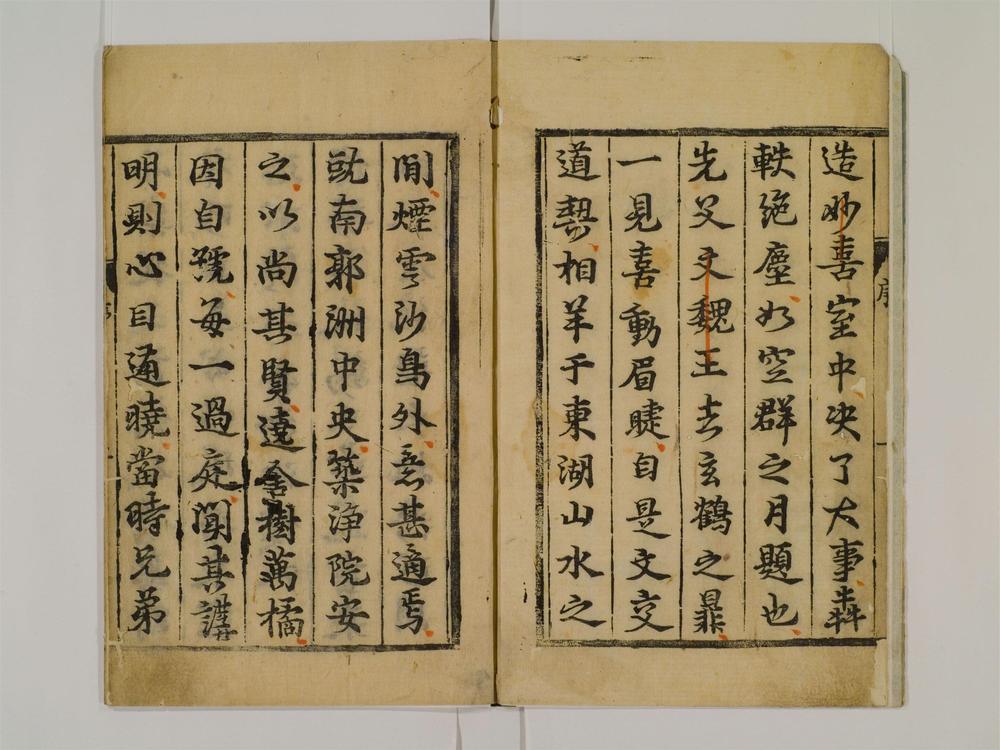 造妙喜室中決了大事犇
軼絶塵如空群之月題也
先父文魏王吉玄鶴之㬥
一見喜動眉睫自是文交
道契相羊于東湖山水之
序
間煙雲沙鳥外意甚適焉
就南郭洲中央築浄院安
之以尚其賢遶舎樹萬橘
因自號每一過庭聞其講
明則心目通曉當時兄弟